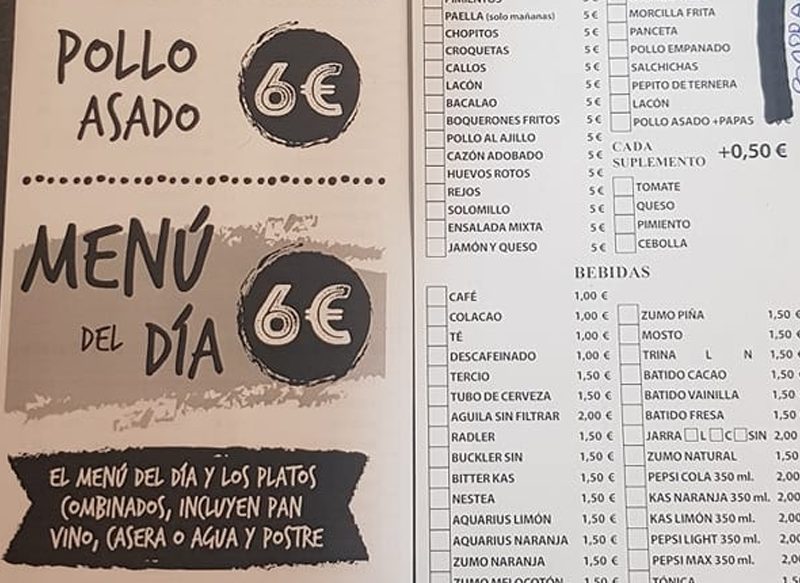 POLLO
ASADO
6€
MENÚ
DEL DÍA
6€
EL MENÚ DEL DÍA Y LOS PLATOS
COMBINADOS, INCLUYEN PAN
VINO, CASERA O AGUA Y POSTRE
PIMIENTOS
PAELLA (solo mañanas) 5 €
CHOPITOS 5 €
CROQUETAS 5 €
CALLOS 5 €
LACÓN 5 €
BACALAO 5 €
BOQUERONES FRITOS 5 €
POLLO AL AJILLO 5 €
CAZÓN ADOBADO 5 €
HUEVOS ROTOS 5 €
REJOS 5 €
SOLOMILLO 5 €
ENSALADA MIXTA 5 €
JAMÓN Y QUESO 5 €
MORCILLA FRITA
PANCETA
POLLO EMPANADO
SALCHICHAS
PEPITO DE TERNERA
LACÓN
POLLO ASADO +PAPAS
CADA
SUPLEMENTO +0,50 €
TOMATE
QUESO
PIMIENTO
CEBOLLA
BEBIDAS
CAFÉ 1,00 €
COLACAO 1,00 €
TÉ 1,00 €
DESCAFEINADO 1,00 €
TERCIO 1,50 €
TUBO DE CERVEZA 1,50 €
AGUILA SIN FILTRAR 2,00 €
RADLER 1,50 €
BUCKLER SIN 1,50 €
BITTER KAS 1,50 €
NESTEA 1,50 €
AQUARIUS LIMÓN 1,50 €
AQUARIUS NARANJA 1,50 €
ZUMO NARANJA 1,50 €
ZUMO MELOCOTÓN 1,50 €
ZUMO PIÑA 1,50 €
MOSTO 1,50 €
TRINA L N 1,50 €
BATIDO CACAO 1,50
BATIDO VAINILLA 1,50
BATIDO FRESA 1,50
JARRA L C SIN 2,00
ZUMO NATURAL 1,50
PEPSI COLA 350 ml. 2,00
KAS NARANJA 350 ml. 2,00
KAS LIMÓN 350 ml. 2,00
PEPSI LIGHT 350 ml. 2,00
PEPSI MAX 350 ml. 2,00
TÓNICA